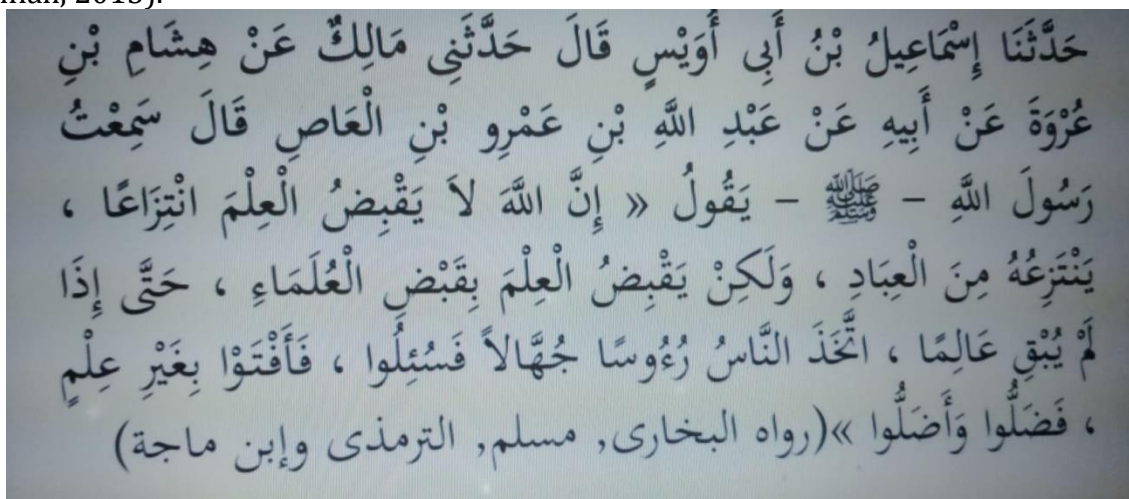 2015).
حَدَّثَنَا إِسْمَاعِيلُ بْنُ أَبِى أُوَيْسٍ قَالَ حَدَّثَنِى مَالِكٌ عَنْ هِشَامِ بْنِ
عُرْوَةَ عَنْ أَبِيهِ عَنْ عَبْدِ اللَّهِ بْنِ عَمْرِو بْنِ الْعَاصِ قَالَ سَمِعْتُ
رَسُولَ اللَّهِ – ﷺ – يَقُولُ « إِنَّ اللَّهَ لاَ يَقْبِضُ الْعِلْمَ انْتِزَاعًا ،
يَنْتَزِعُهُ مِنَ الْعِبَادِ ، وَلَكِنْ يَقْبِضُ الْعِلْمَ بِقَبْضِ الْعُلَمَاءِ ، حَتَّى إِذَا
لَمْ يُبْقِ عَالِمًا ، اتَّخَذَ النَّاسُ رُءُوسًا جُهَّالاً فَسُئِلُوا ، فَأَفْتَوْا بِغَيْرِ عِلْمٍ
، فَضَلُّوا وَأَضَلُّوا »(رواه البخارى, مسلم, الترمذى وإبن ماجة)